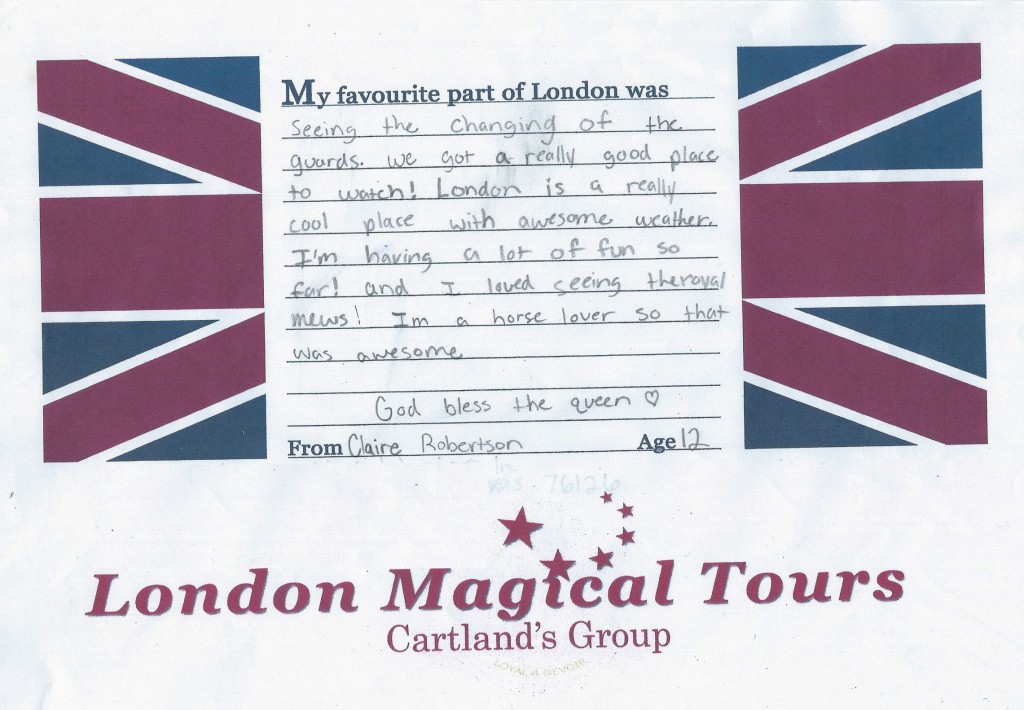 My favourite part of London was
Seeing the changing of the
guards. we got a really good place
to watch! London is a really
cool place with awesome weather.
I'm having a lot of fun so
far! and I loved seeing theroyal
mews! Im a horse lover so that
was awesome
God bless the queen ♡
From Claire Robertson Age 12
76126
London Magical Tours
Cartland's Group
LOYAL A DEVOIR